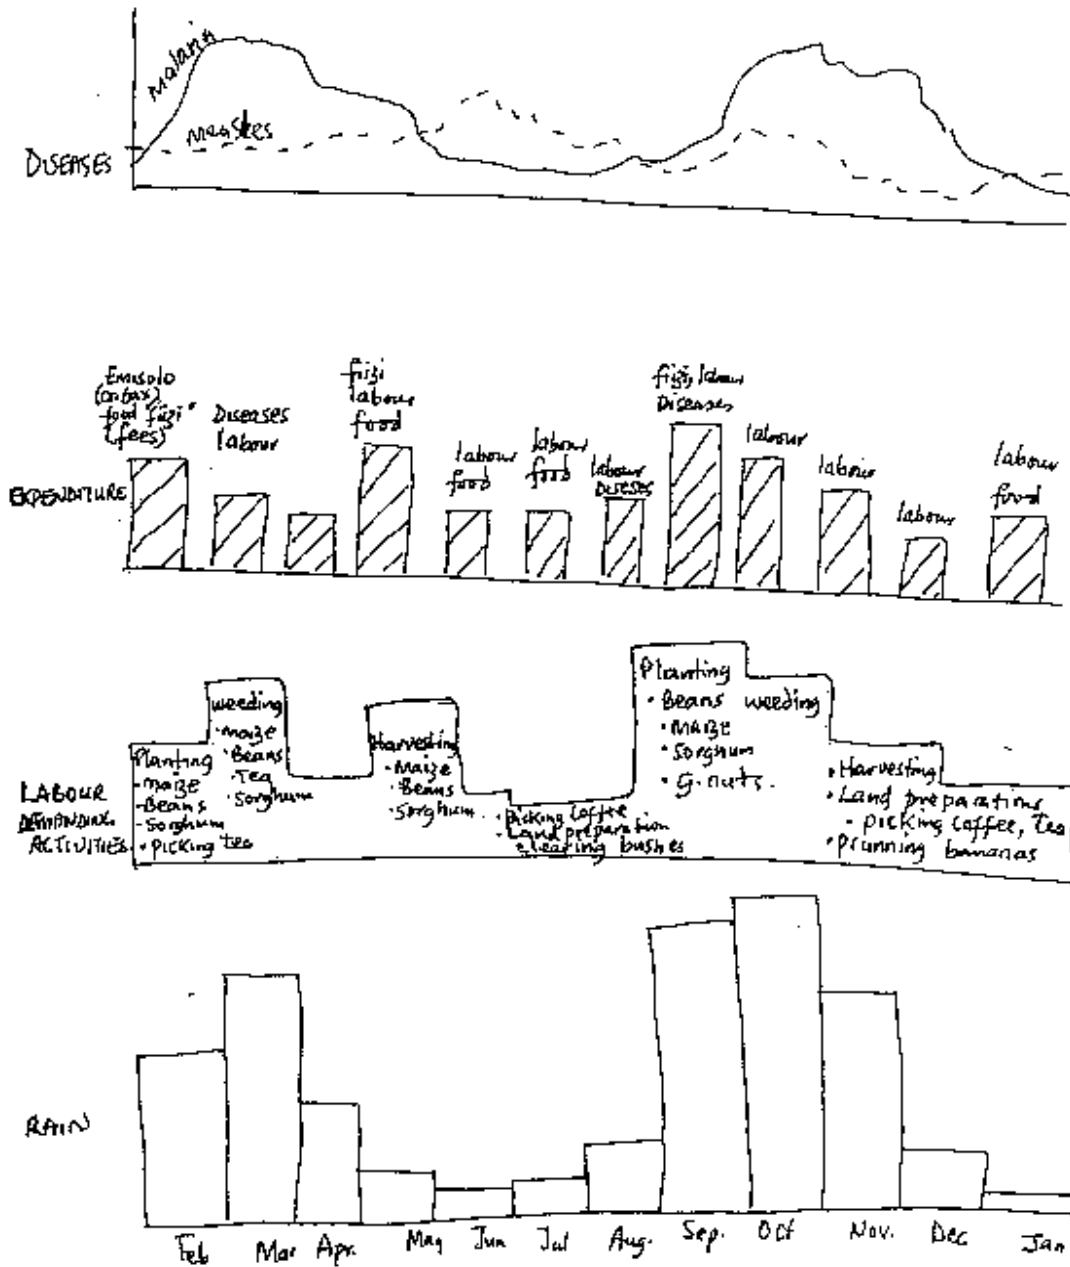 Malaria
Measles
DISEASES
Emisolo
(on tax)
food "fizi"
(fees)
Diseases
labour
fizi
labour
food
labour
food
labour
food
labour
DISESES
fizi, labour
Diseases
labour
labour
labour
labour
food
EXPENDITURE
Planting
• maize
• Beans
• Sorghum
• picking tea
weeding
• maize
• Beans
• Tea
• Sorghum
Harvesting
• Maize
• Beans
• Sorghum
• picking coffee
• Land preparation
• clearing bushes
Planting
• Beans
• Maize
• Sorghum
• G.nuts.
weeding
• Harvesting
• Land preparations
• picking coffee, Tea
• prunning bananas
LABOUR
DEMANDING
ACTIVITIES
RAIN
Feb Mar Apr. May Jun Jul Aug. Sep. Oct Nov. Dec Jan